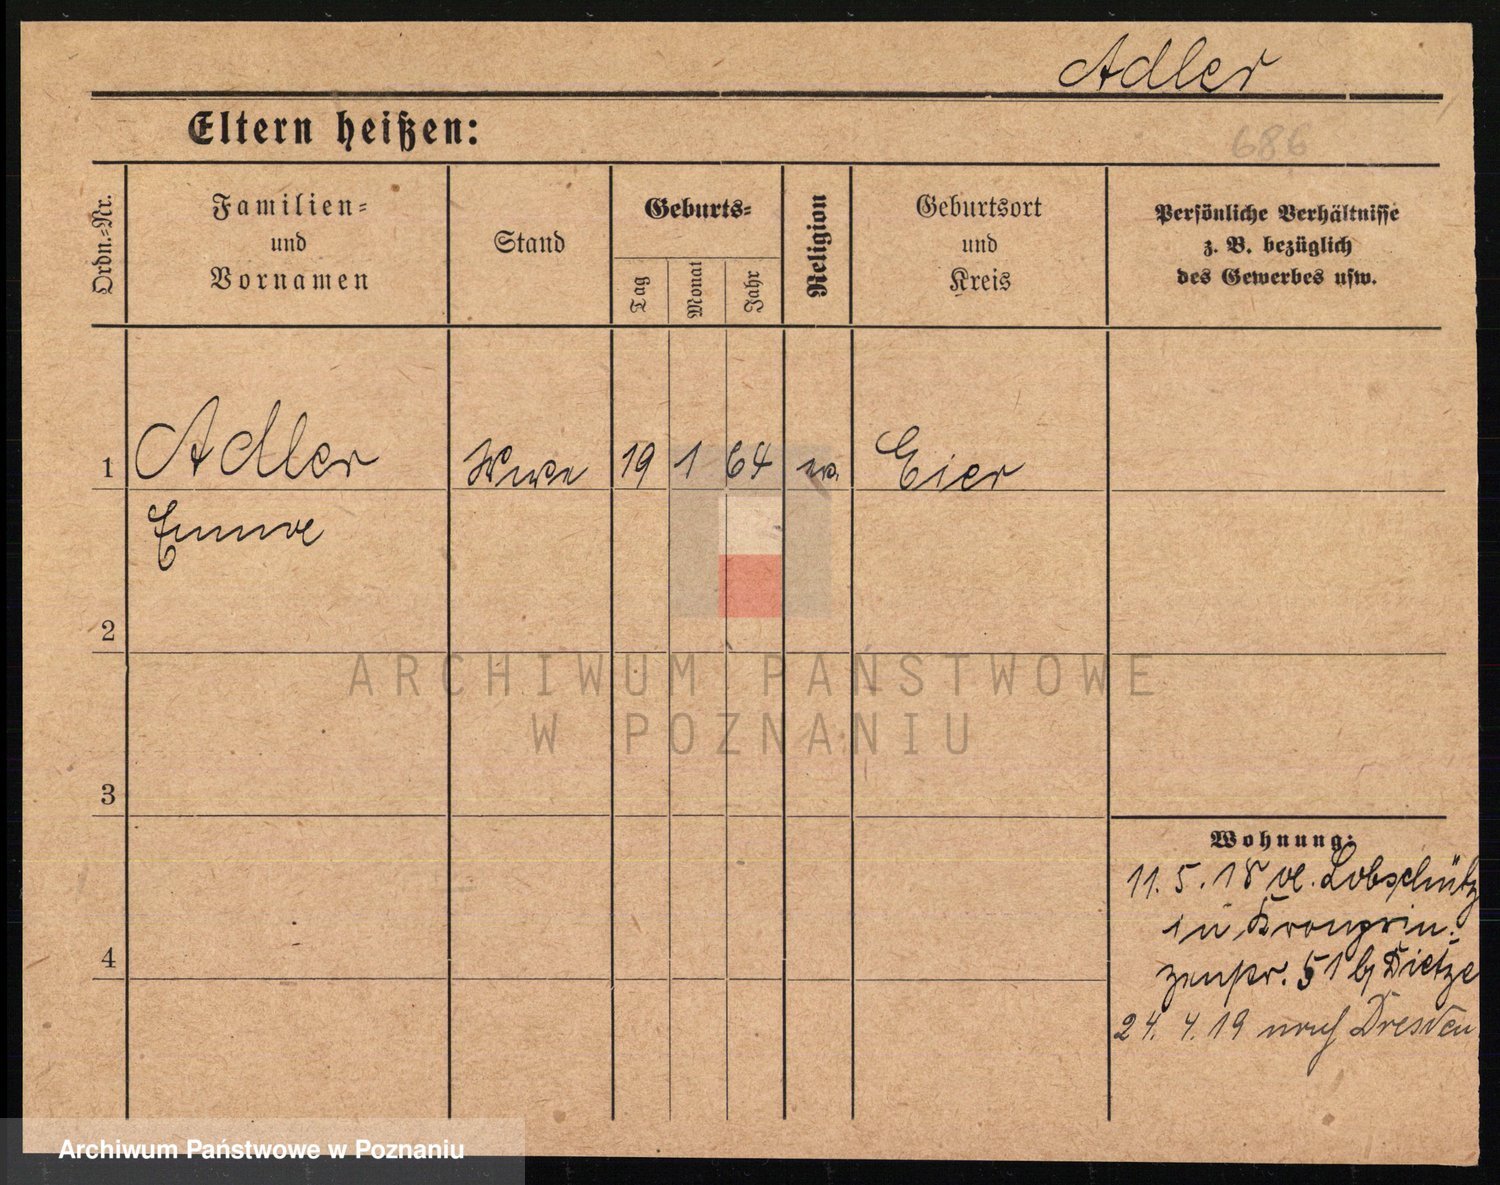 Adler
Eltern heißen:
686
Ordn.-Nr.
Familien-
und
Vornamen
Stand
Geburts-
Tag
Monat
Jahr
Religion
Geburtsort
und
Kreis
Persönliche Verhältnisse
z. B. bezüglich
des Gewerbes usw.
1 Adler Witwe 19 1 64 ev. Eier
Emma
2
ARCHIWUM PAŃSTWOWE
W POZNANIU
3
Wohnung:
11. 5. 18 Lobschütz
in Kronprin-
zenstr. 51 b/ Dietze
4
24. 4. 19 nach Dresden
Archiwum Państwowe w Poznaniu